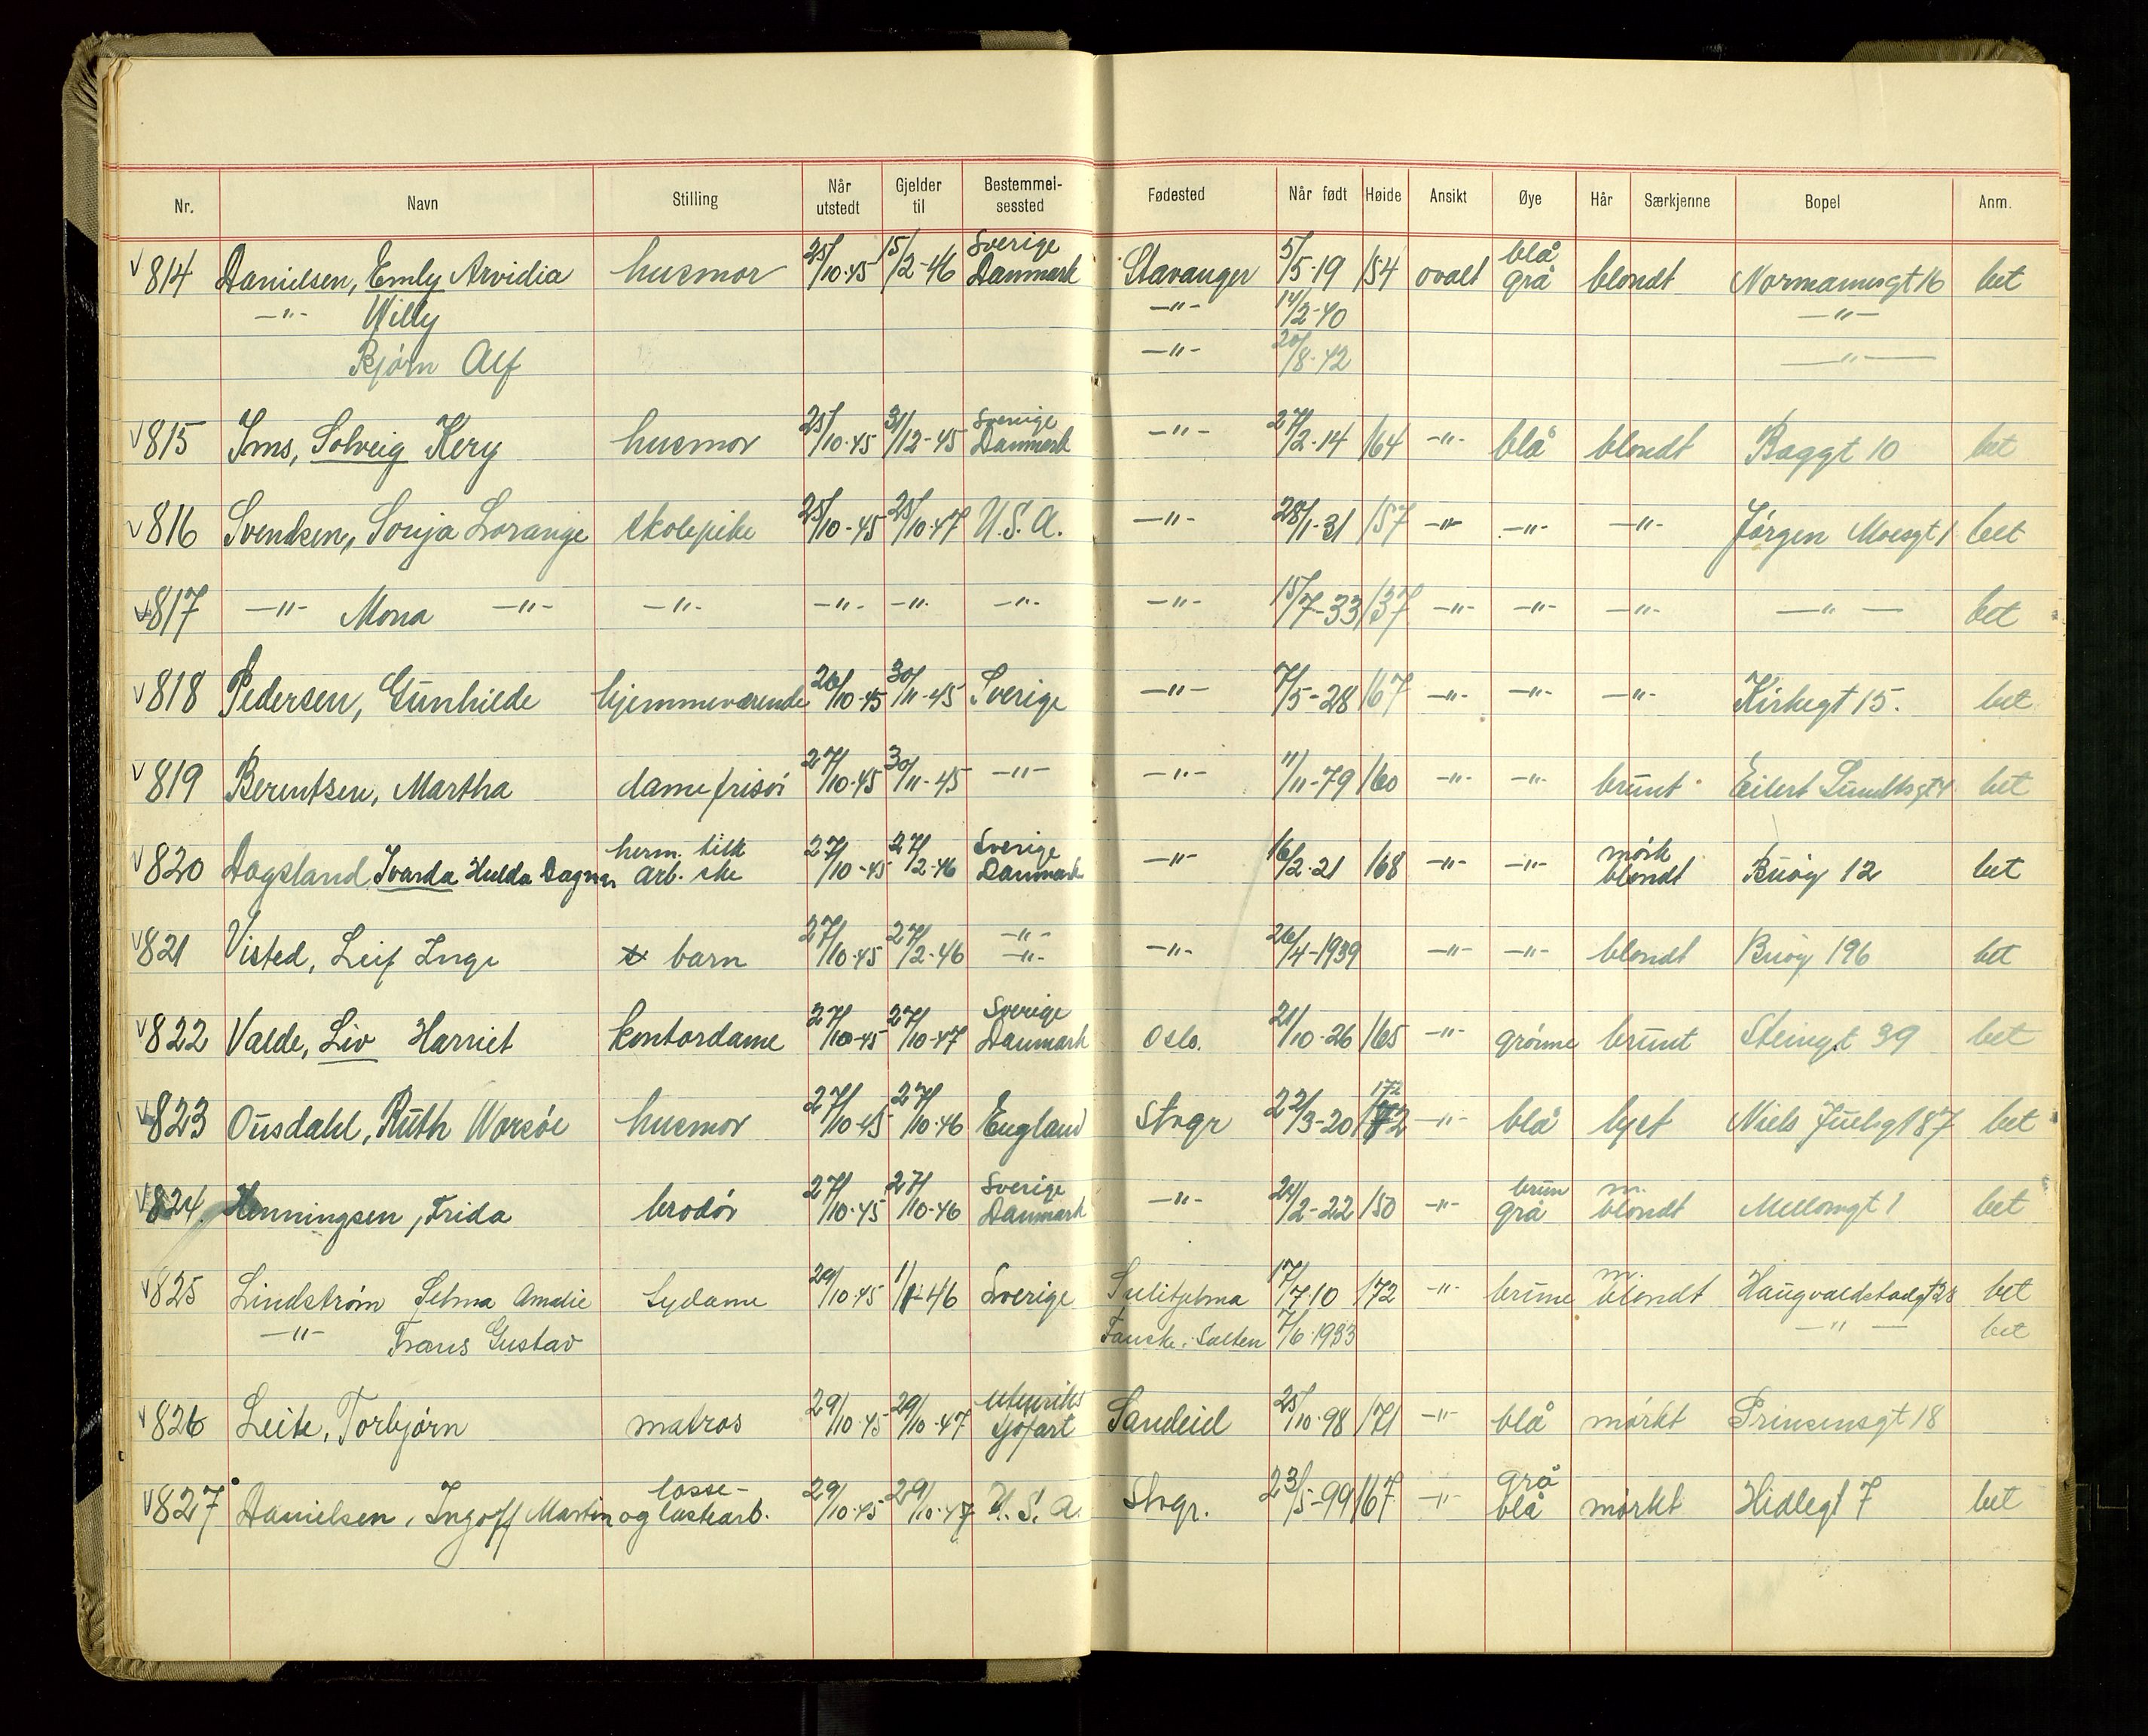 Nr. Navn Stilling Når utstedt Gjelder til Bestemmel-sessted Fødested Når født Høide Ansikt Øye Hår Særkjenne Bopel Anm.
V 814 Danielsen, Emly Arvidia husmor 25/10-45 15/2-46 Sverige Danmark Stavanger 5/5-19 154 ovalt blå grå blondt Normannsgt 16 bet
-"- Willy -"- 14/2-40 -"-
Bjørn Alf -"- 20/8-42 -"-
V 815 Ims, Solveig Kery husmor 25/10-45 31/12-45 Sverige Danmark -"- 27/2-14 164 -"- blå blondt Baggt 10 bet
V 816 Svendsen, Sonja Lorange skolepike 25/10-45 25/10-47 U.S.A. -"- 28/1-31 157 -"- -"- -"- Jørgen Moesgt 1 bet
V 817 -"- Mona -"- -"- -"- -"- -"- -"- 15/7-33 137 -"- -"- -"- -"- bet
V 818 Pedersen, Gunhilde hjemmeværende 26/10-45 30/11-45 Sverige -"- 7/5-28 167 -"- -"- -"- Kirkegt 15. bet
V 819 Berentsen, Martha damefrisør 27/10-45 30/11-45 -"- -"- 11/11-79 160 -"- -"- brunt Eilert Sundtsgt 4 bet
V 820 Dagsland Ivarda Hulda Dagnar herm. tilk arb. ske 27/10-45 27/2-46 Sverige Danmark -"- 16/2-21 168 -"- -"- mørk blondt Buøy 12 bet
V 821 Visted, Leif Inge barn 27/10-45 27/2-46 -"- -"- -"- 26/4-1939 -"- -"- blondt Buøy 196 bet
V 822 Valde, Liv Harriet kontordame 27/10-45 27/10-47 Sverige Danmark Oslo. 21/10-26 165 -"- grønne brunt Steingt 39 bet
V 823 Ousdahl, Ruth Worsøe husmor 27/10-45 27/10-46 England Stvgr 22/3-20 172 -"- blå lyst Niels Juelsgt 87 bet
V 824 Henningsen, Frida brodør 27/10-45 27/10-46 Sverige Danmark -"- 24/2-22 150 -"- brun grå m. blondt Mellomgt 1 bet
V 825 Lindstrøm Selma Amalie Sydame 29/10-45 1/1-46 Sverige Sulitjelma 17/7-10 172 -"- brune m. blondt Haugvaldstadgt 28 bet
-"- Frans Gustav Fauske i Salten 7/6-1933 -"- bet
V 826 Leite, Torbjørn matros 29/10-45 29/10-47 utenriks sjøfart Sandeid 25/10-98 171 -"- blå mørkt Prinsensgt 18
V 827 Danielsen, Ingolf Martin losse- og lastearb. 29/10-45 29/10-47 U.S.A. Stvgr. 23/5-99 167 -"- grå blå mørkt Hidlegt 7 bet